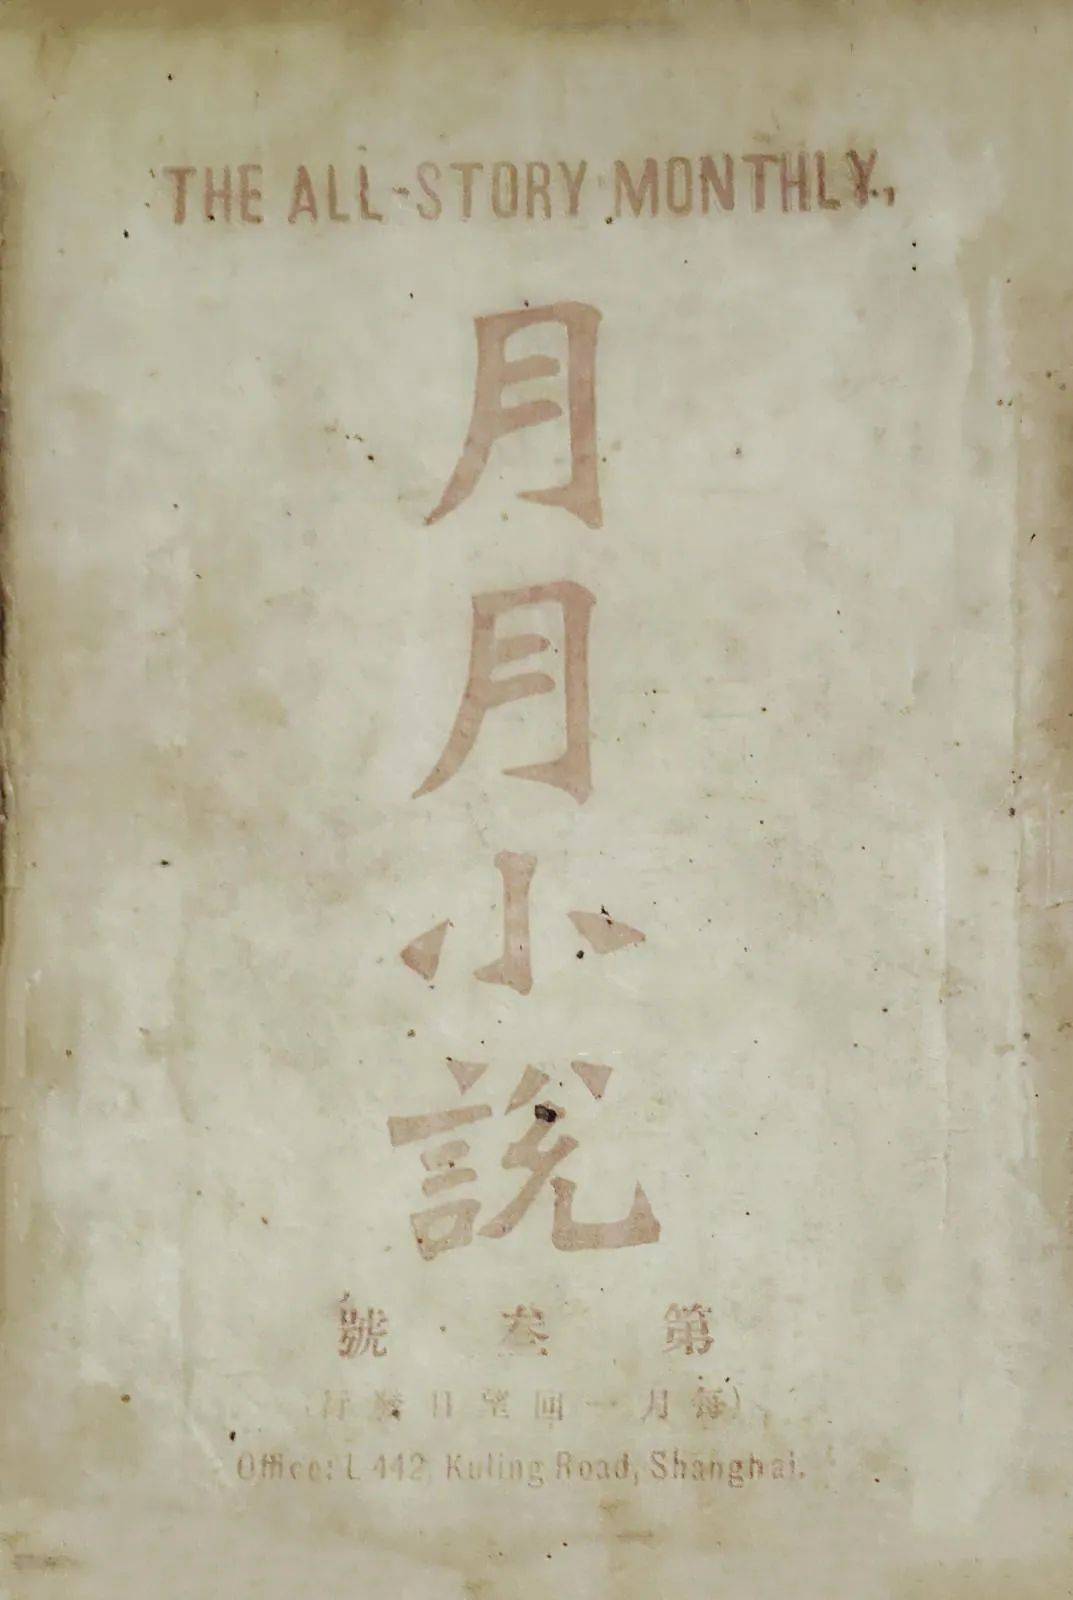 THE ALL-STORY MONTHLY.,
月月小說
第叁號
(每月一回望日發行)
Office: L 442, Kuling Road, Shanghai.